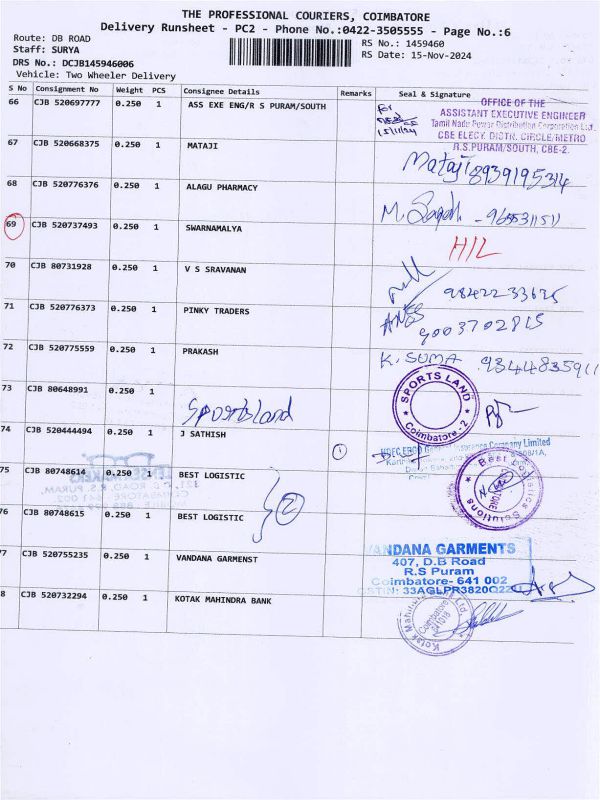 THE PROFESSIONAL COURIERS, COIMBATORE
Delivery Runsheet - PC2 - Phone No.:0422-3505555 - Page No.:6
Route: DB ROAD
Staff: SURYA
RS No.: 1459460
RS Date: 15-Nov-2024
DRS No.: DCJB145946006
Vehicle: Two Wheeler Delivery
S No Consignment No Weight PCS Consignee Details Remarks Seal & Signature
66 CJB 520697777 0.250 1 ASS EXE ENG/R S PURAM/SOUTH
For
15/11/24
OFFICE OF THE
ASSISTANT EXECUTIVE ENGINEER
Tamil Nadu Power Distribution Corporation Ltd.
CBE ELECY. DISTN. CIRCLE/METRO
R.S.PURAM/SOUTH, CBE-2.
67 CJB 520668375 0.250 1 MATAJI
Mataji 8939195314
68 CJB 520776376 0.250 1 ALAGU PHARMACY
M.
69 CJB 520737493 0.250 1 SWARNAMALYA
H/L
70 CJB 80731928 0.250 1 V S SRAVANAN
71 CJB 520776373 0.250 1 PINKY TRADERS
9003702815
72 CJB 520775559 0.250 1 PRAKASH
K. SUMA 9344835911
73 CJB 80648991 0.250 1
Sportsland
SPORTS LAND
Coimbatore - 2
74 CJB 520444494 0.250 1 J SATHISH
1
HDFC ERGO General Insurance Company Limited
75 CJB 80748614 0.250 1 BEST LOGISTIC
2
Best Logistics Solutions
76 CJB 80748615 0.250 1 BEST LOGISTIC
77 CJB 520755235 0.250 1 VANDANA GARMENST
VANDANA GARMENTS
407, D.B Road
R.S Puram
Coimbatore- 641 002
GSTIN: 33AGLPR3820Q2
8 CJB 520732294 0.250 1 KOTAK MAHINDRA BANK
Kotak Mahindra Ltd.
Coimbatore
641018